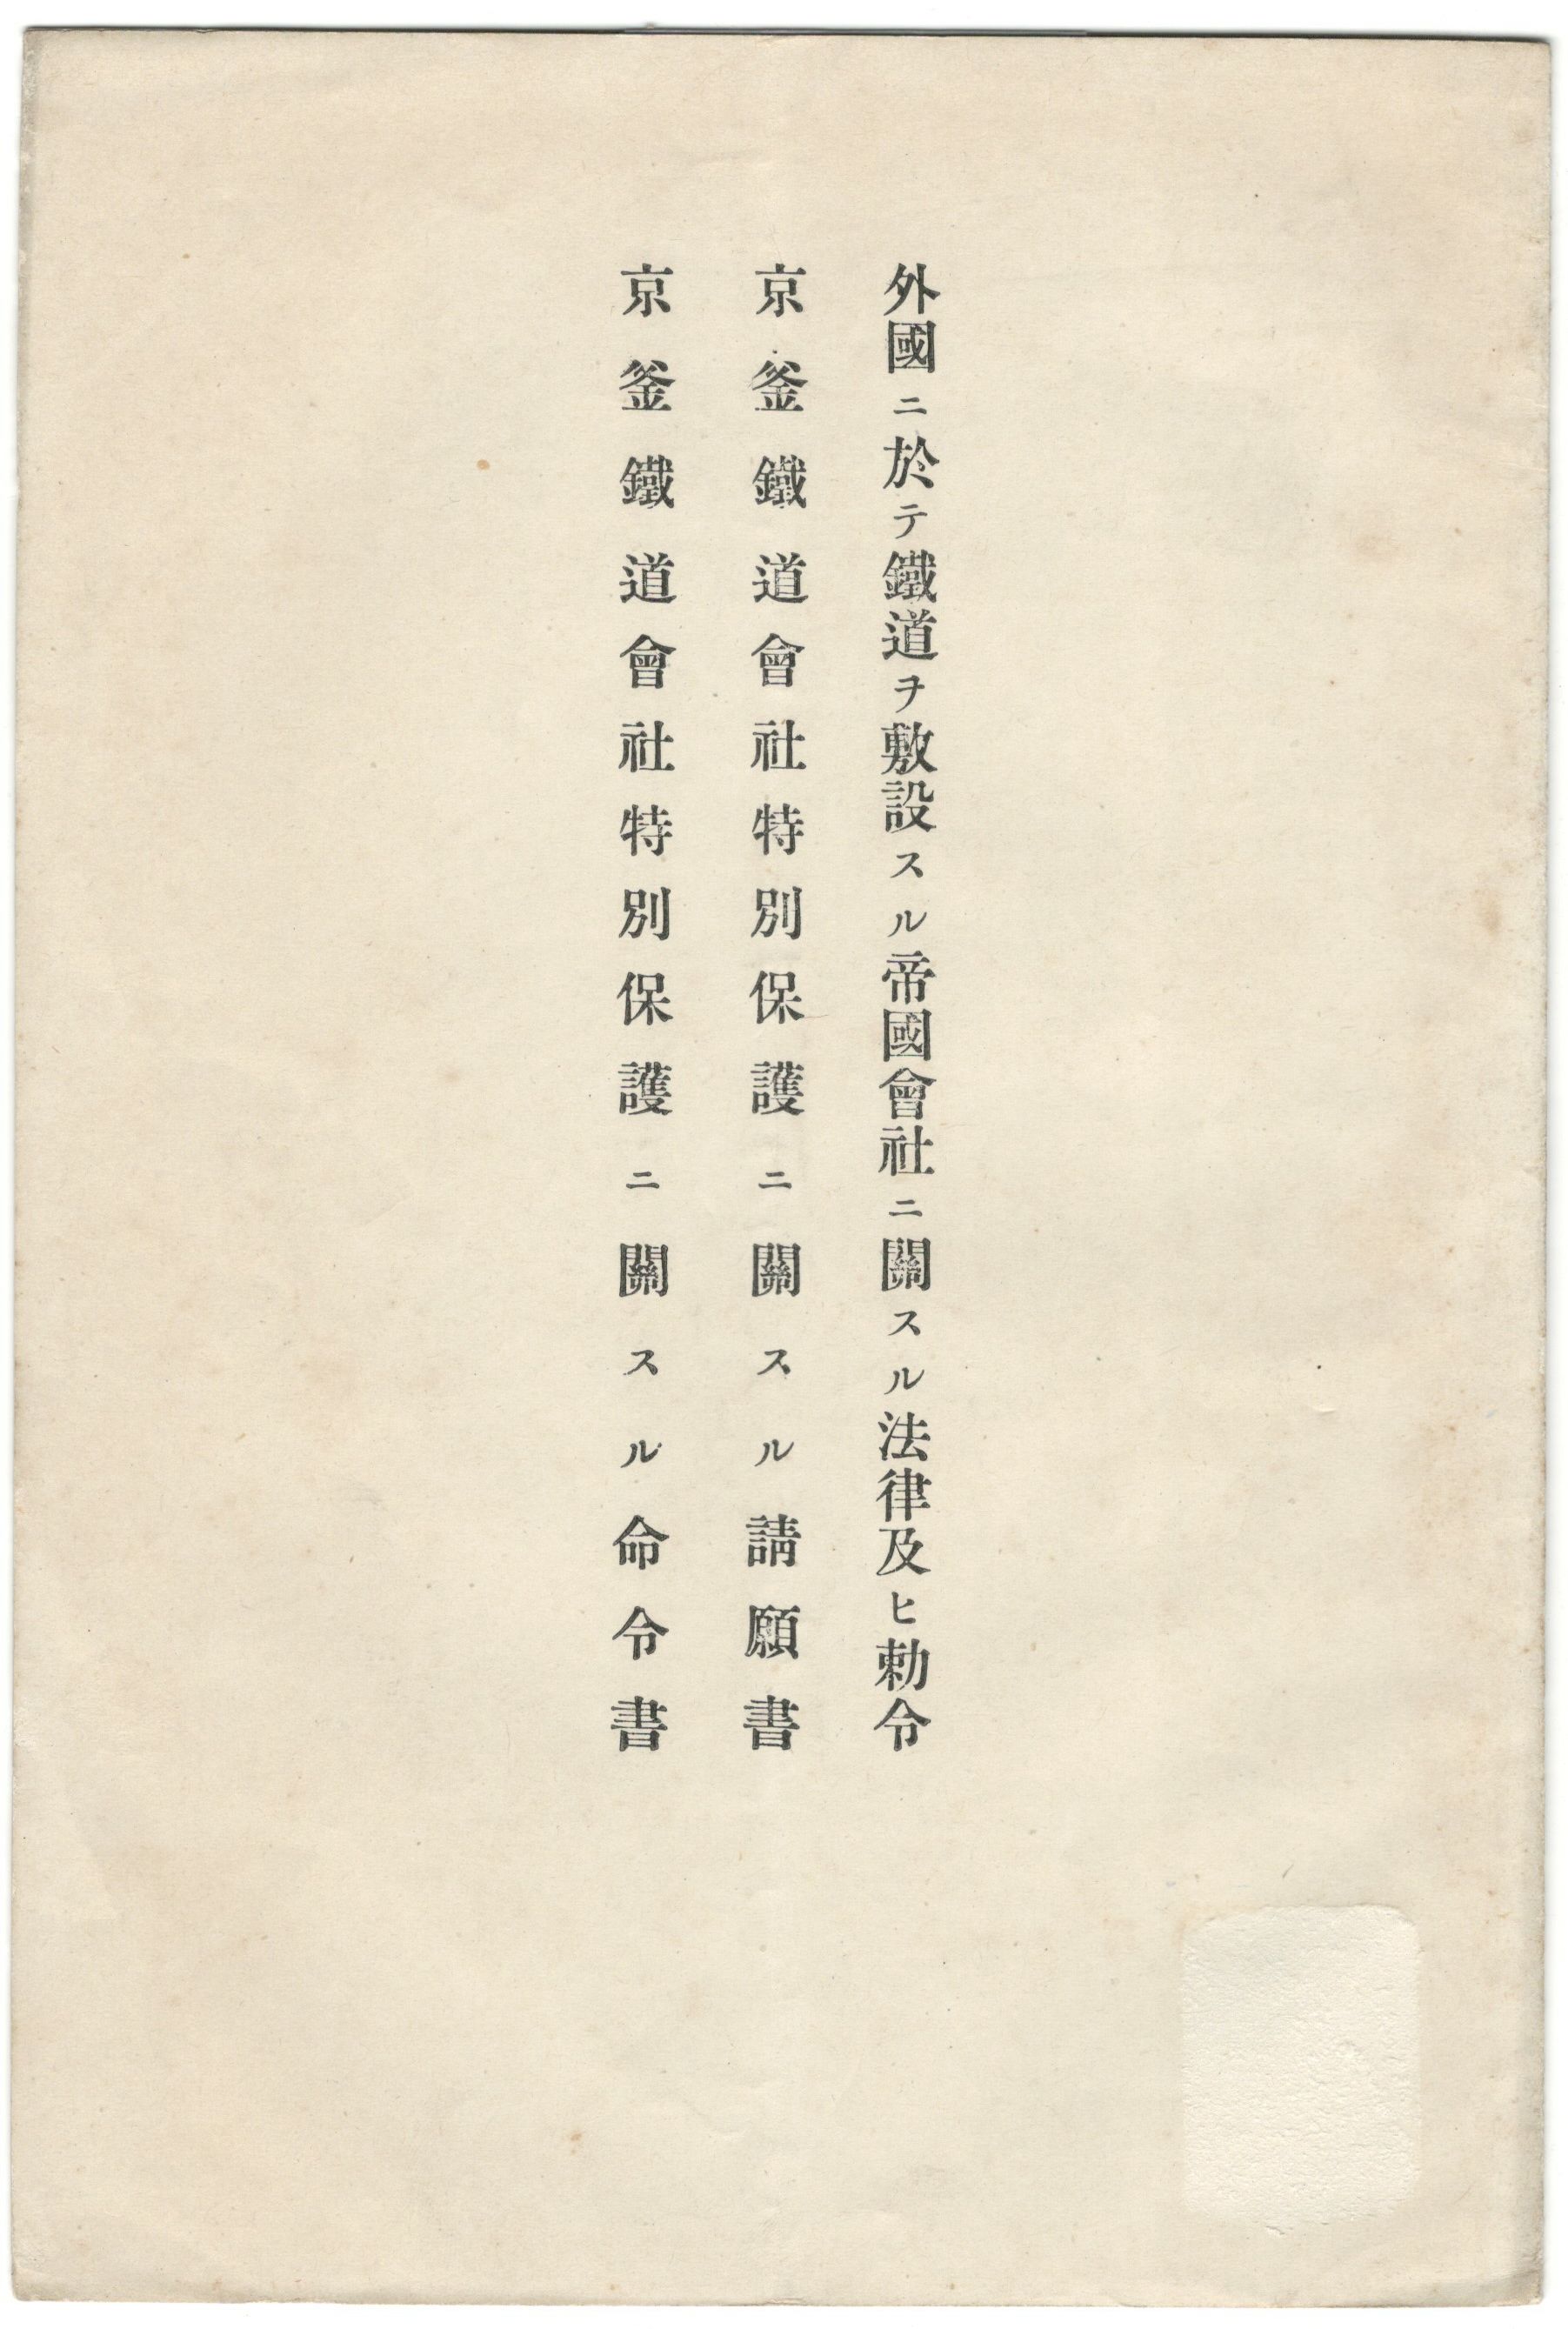 外國ニ於テ鐵道ヲ敷設スル帝國會社ニ關スル法律及ヒ勅令
京釜鐵道會社特別保護ニ關スル請願書
京釜鐵道會社特別保護ニ關スル命令書